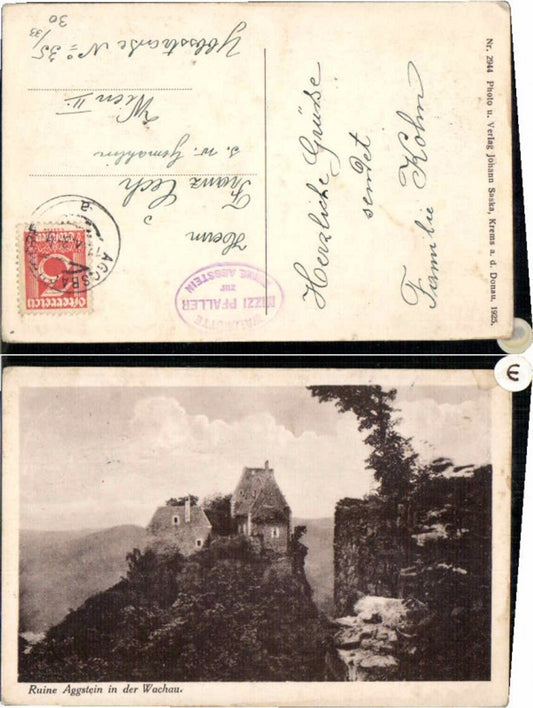 Nr. 2944 Photo u. Verlag Johann Saska, Krems a. d. Donau, 1925.
Herzliche Grüße
sendet
Familie Kohn
Herrn
Franz Cech
s. w. Gemahlin
Wien II
Volkertstraße No 35
30/33
Österreich
AGGSBA
a
WALDHÜTTE
MIZZI PFALLER
zur
RUINE AGGSTEIN
Ruine Aggstein in der Wachau.